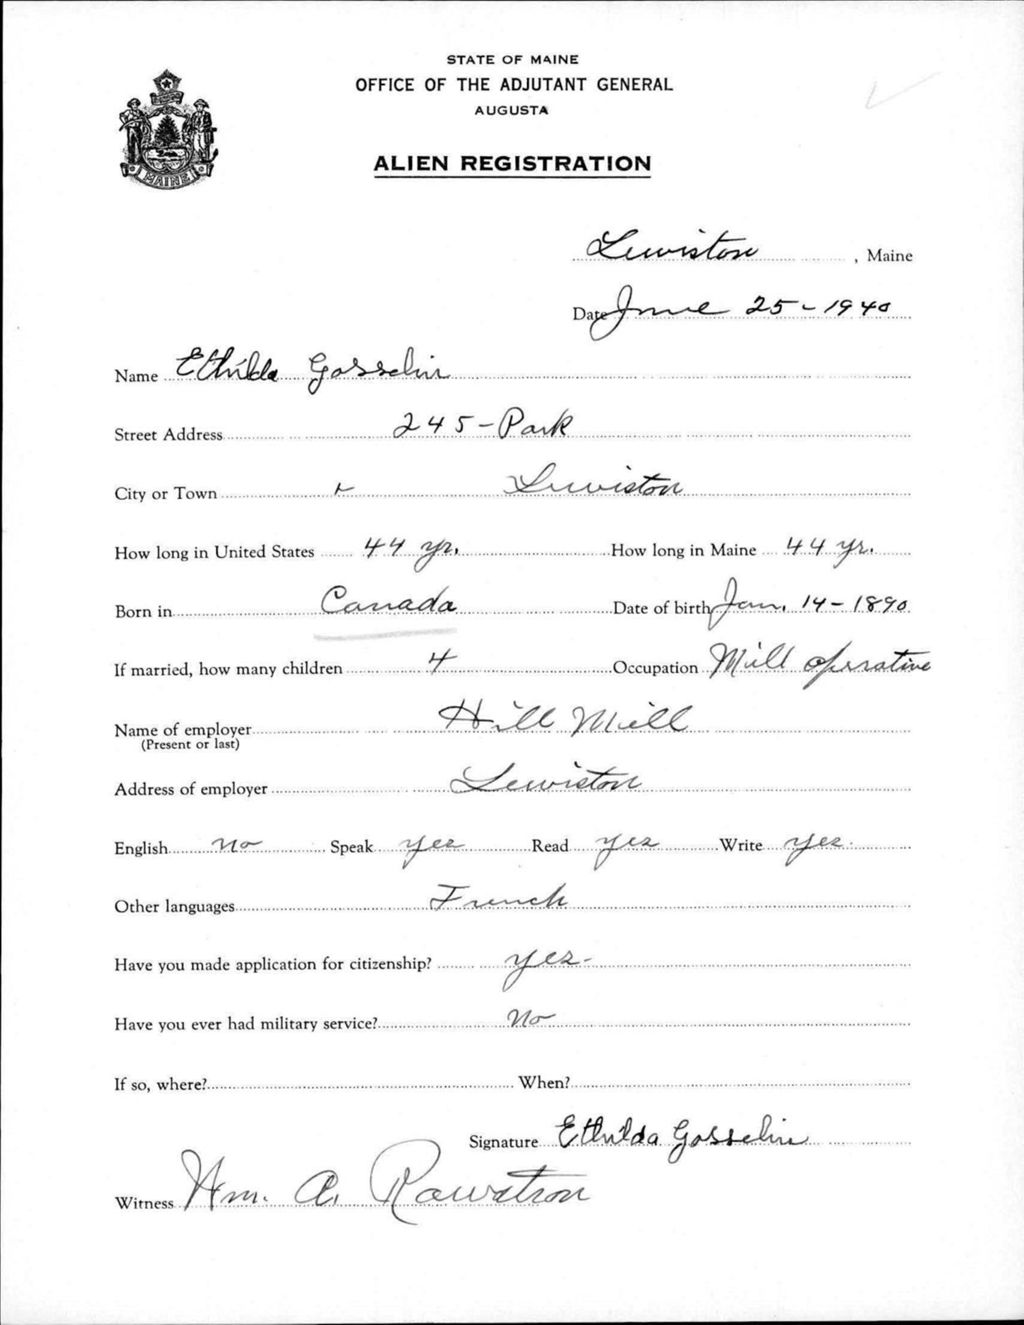 STATE OF MAINE
OFFICE OF THE ADJUTANT GENERAL
AUGUSTA
ALIEN REGISTRATION
MAINE
Lewiston, Maine
Date June 25 - 1940
Name Ethilda Gosselin
Street Address 245 - Park
City or Town Lewiston
How long in United States 44 yr. How long in Maine 44 yr.
Born in Canada Date of birth Jan. 14 - 1890
If married, how many children 4 Occupation Mill operative
Name of employer Hill Mill
(Present or last)
Address of employer Lewiston
English no Speak yes Read yes Write yes.
Other languages French
Have you made application for citizenship? yes -
Have you ever had military service? No
If so, where? When?
Signature Ethilda Gosselin
Witness Wm. A. Rowatson